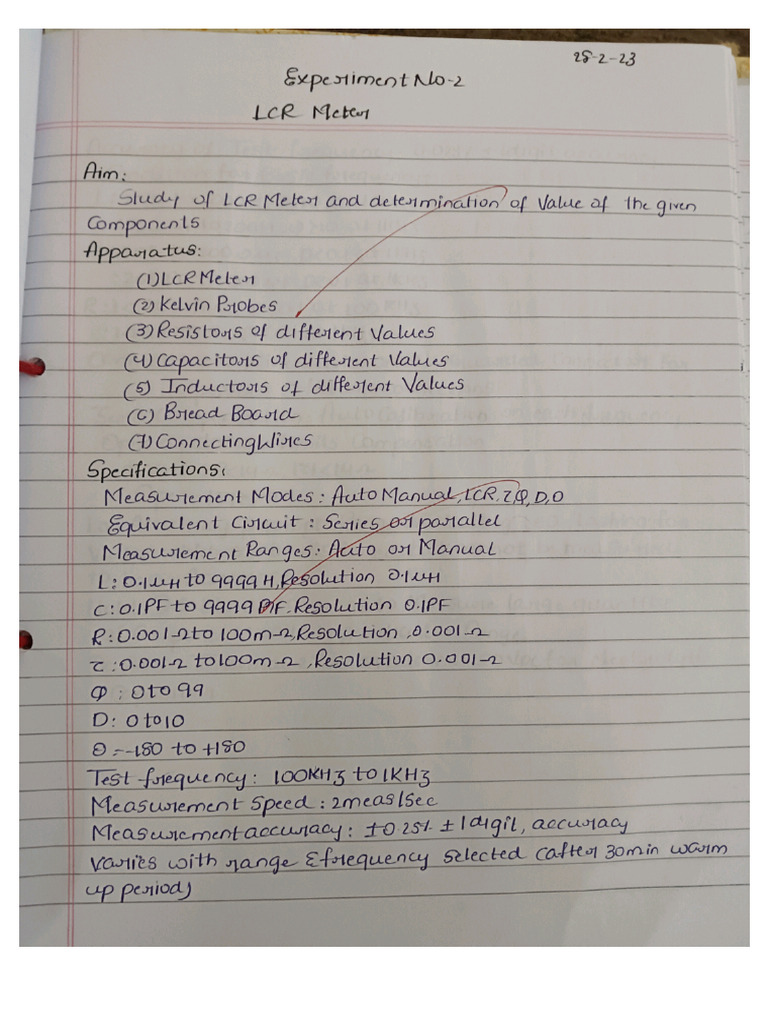 28-2-23
Experiment No-2
LCR Meter
Aim:
Study of LCR Meter and determination of Value of the given
Components
Apparatus:
(1) LCR Meter
(2) Kelvin Probes
(3) Resistors of different Values
(4) Capacitors of different Values
(5) Inductors of different Values
(6) Bread Board
(7) Connecting Wires
Specifications:
Measurement Modes: Auto Manual, LCR, Z, Q, D, O
Equivalent Circuit: Series or parallel
Measurement Ranges: Auto or Manual
L: 0.1μH to 9999 H, Resolution 0.1μH
C: 0.1PF to 9999 F. Resolution 0.1PF
R: 0.001-Ω to 100m-Ω, Resolution, 0.001-Ω
Z: 0.001-Ω to 100m-Ω, Resolution 0.001-Ω
Φ: 0 to 99
D: 0 to 10
Θ = -180 to +180
Test frequency: 100KHz to 1KHz
Measurement Speed: 2meas/sec
Measurement accuracy: ±0.25% ± 1 digit, accuracy
varies with range & frequency selected (after 30min warm
up period)